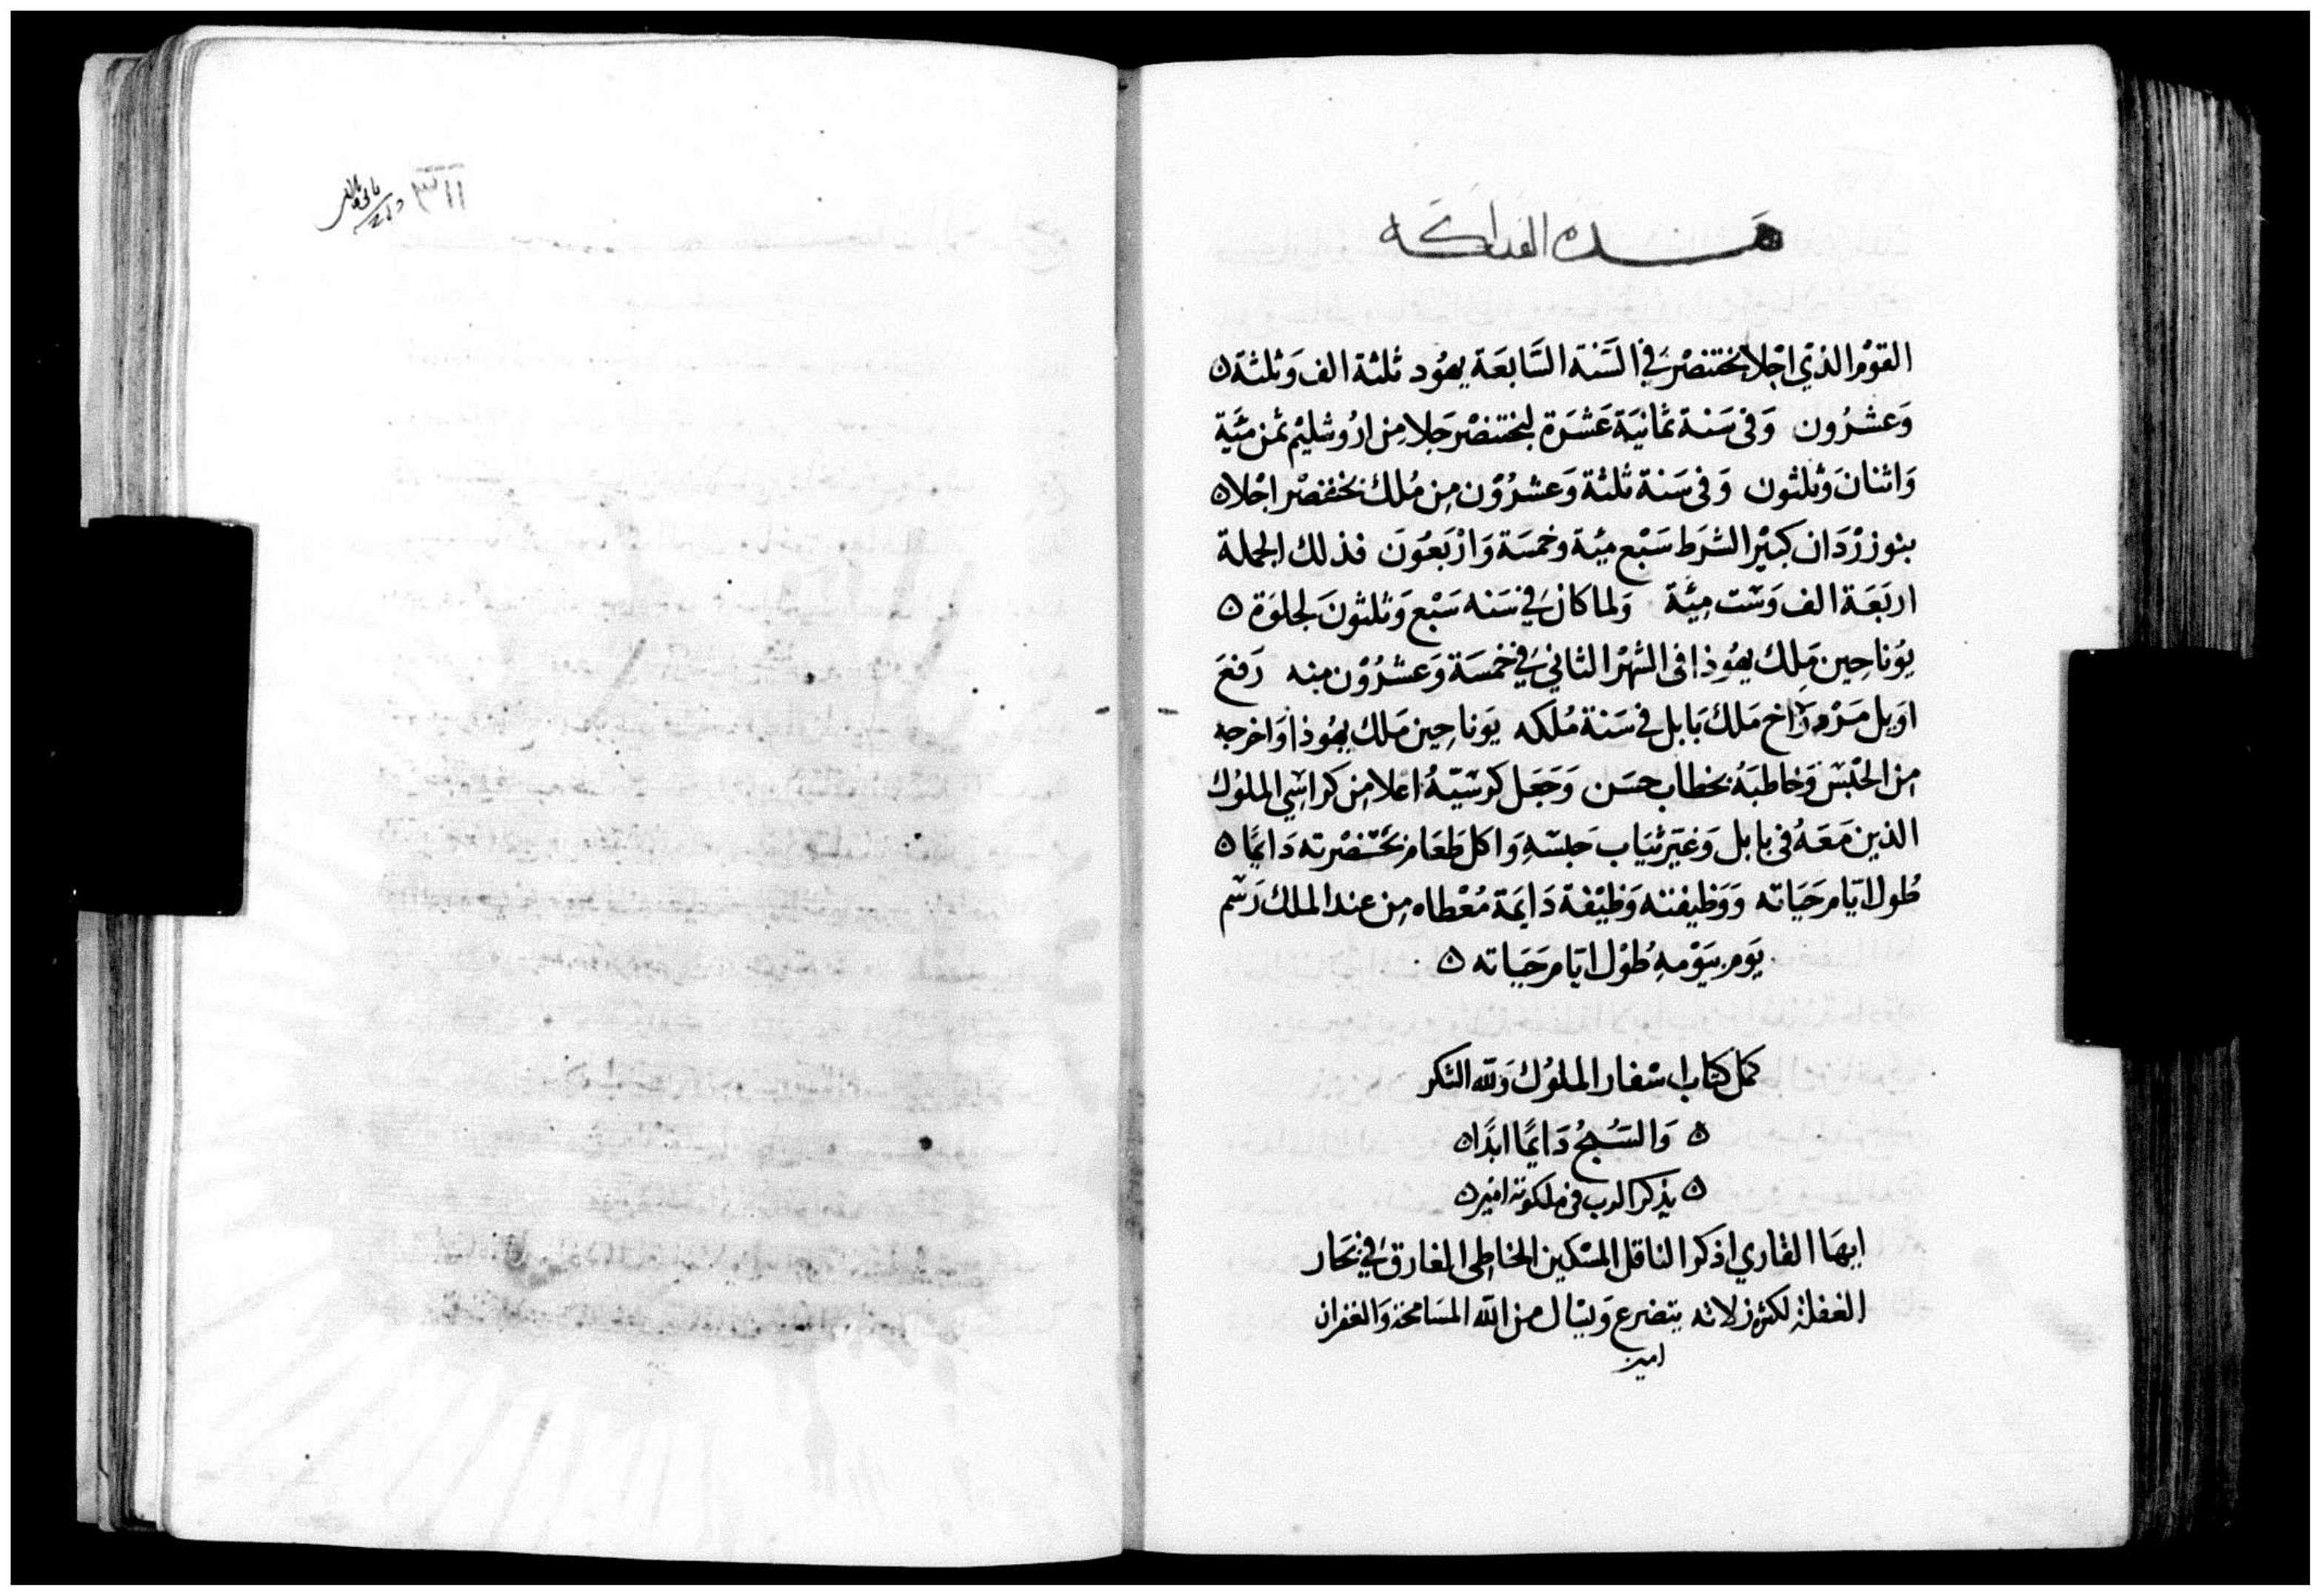 القوْم الذي اجْلا بختنصْر في السَّنة السَّابعَة يهُود ثلثة الف وَثلثة
وَعشرُون وَفى سَنة ثمانيَة عَشرَة لبختنصْر جَلا مِن ارُوشليْم ثمن مئَة
وَاثنان وَثلثون وَفى سَنة ثلثة وَعشرُوْن مِن مُلك بختنصْر اجْلاه
بنوزرْدَان كبيْر الشرَط سَبْع مئة وخمسَة وَارْبَعُونَ فذلك الجملة
اربَعَة الف وَسَت مِئة وَلما كان في سَنه سَبْع وَثلثونَ لجلوَة
يوُناحِين مَلِك يهُوذا فى الشهْر الثاني في خمسَة وَعشرُوْن منه رَفعَ
اوَيل مَرْدوَاخ مَلك بَابل في سَنة مُلكه يَوناحِين مَلك يهُوذا وَاخرجه
مِن الحَبْسَ وَخاطبَهُ بخطاب حسَن وَجَعَل كرسَيّهُ اعلا مِن كراسَي الملوُك
الذين مَعَهُ فى بابل وَغيَر ثيَاب حَبسَهِ وَاكل طعَام بحَضْرته دَايمًا
طُول ايّام حَيَاته وَوَظيفته وَظيْفة دَايمَة مُعْطاه مِن عند الملك رَسَم
يَوم بيَوْمهِ طُوْل ايّام حَيَاته
كمل كتاب اسْفار الملوُك وَلله الشكر
وَالسَبْحُ دَايمًا ابَدًا
يذكر الرب فى ملكوته امين
ايهَا القاري اذكر الناقل المسْكين الخاطِى الغارق في بحَار
الغفلة لكثرة زلاته يتضرع وَيسَال من الله المسَامحة وَالغفران
امين
٣١١